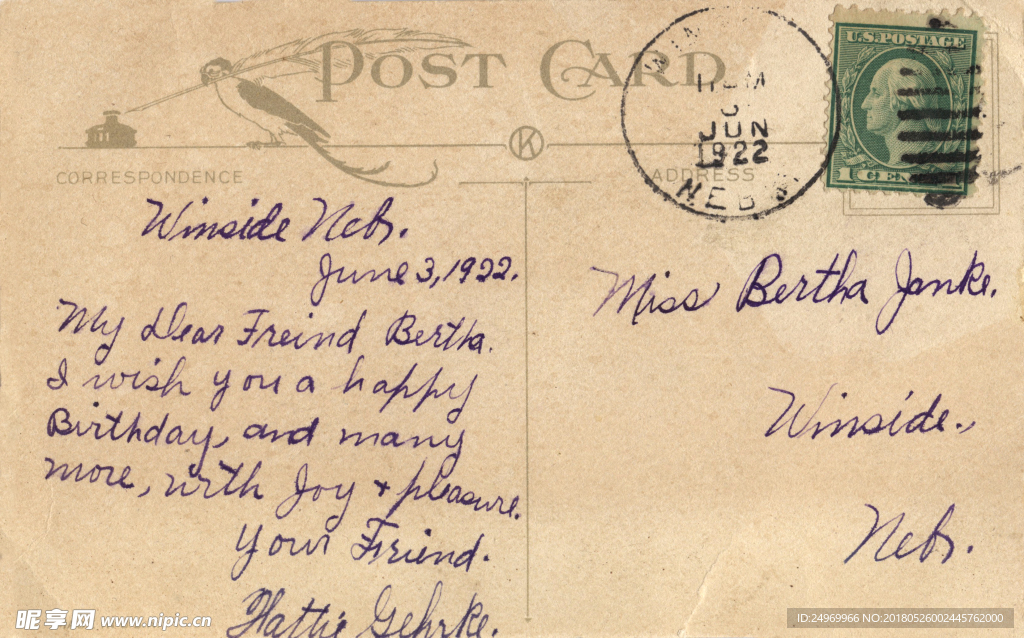 POST CARD
CORRESPONDENCE
ADDRESS
U.S. POSTAGE
JUN
1922
NEBR.
Winside Nebr.
June 3, 1922.
My Dear Freind Bertha.
I wish you a happy
Birthday, and many
more, with Joy + pleasure.
Your Friend.
Hattie Gehrke.
Miss Bertha Janke.
Winside.,
Nebr.
昵享网 www.nipic.cn
ID:24969966 NO:20180526002445762000